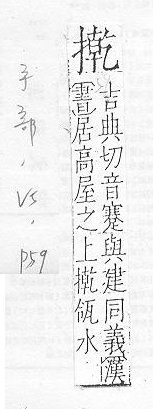 吉典切音蹇與建同義漢
書居高屋之上
瓴水
手部, V5, p59